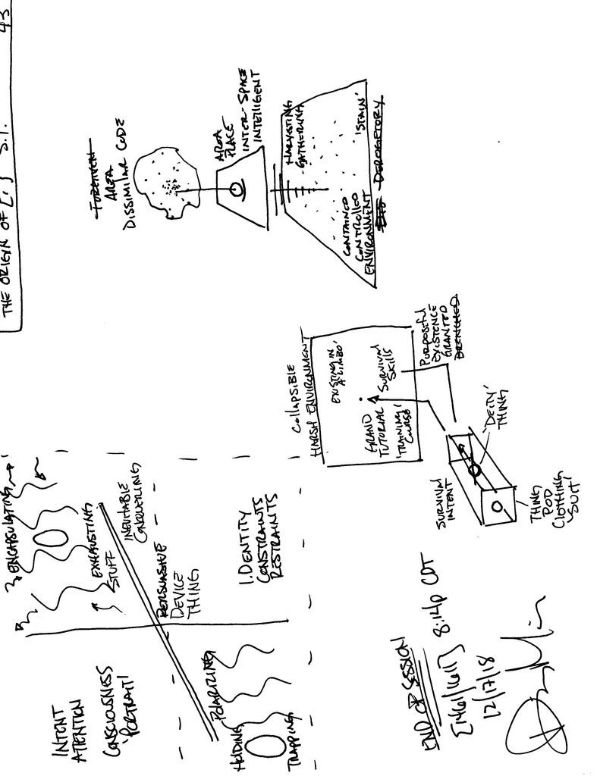 THE ORIGIN OF [,] S.I. 43
INTENT
ATTENTION
CONSCIOUSNESS
'PORTRAIT'
2. ENCAPSULATING
EXHAUSTING
STUFF
INEVITABLE
CANOODLING
PERSUASIVE
DEVICE
THING
POLARIZING
HOLDING
TRAPPING
1. IDENTITY
CONSTRAINTS
RESTRAINTS
AREA
DISSIMILAR CODE
AREA
PLACE
INTER-SPACE
INTELLIGENT
HARVESTING
GATHERING
'STAIN'
CONTAINED
CONTROLLED
ENVIRONMENT
DEROGETORY
COLLAPSIBLE
HARSH ENVIRONMENT
EXISTING IN
A 'LIMBO'
GRAND
TUTORIAL
'TRAINING'
SURVIVAL
SKILLS
PURPOSEFUL
EXISTENCE
GRANTED
SURVIVAL
INTENT
'DEITY'
THING
THING
POD
CLOTHING
'SUIT'
END OF SESSION
8:14p CDT
12/17/18